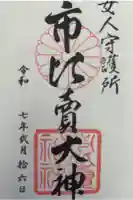 女人守護所
市比賣大神
令和
七年弐月拾六日